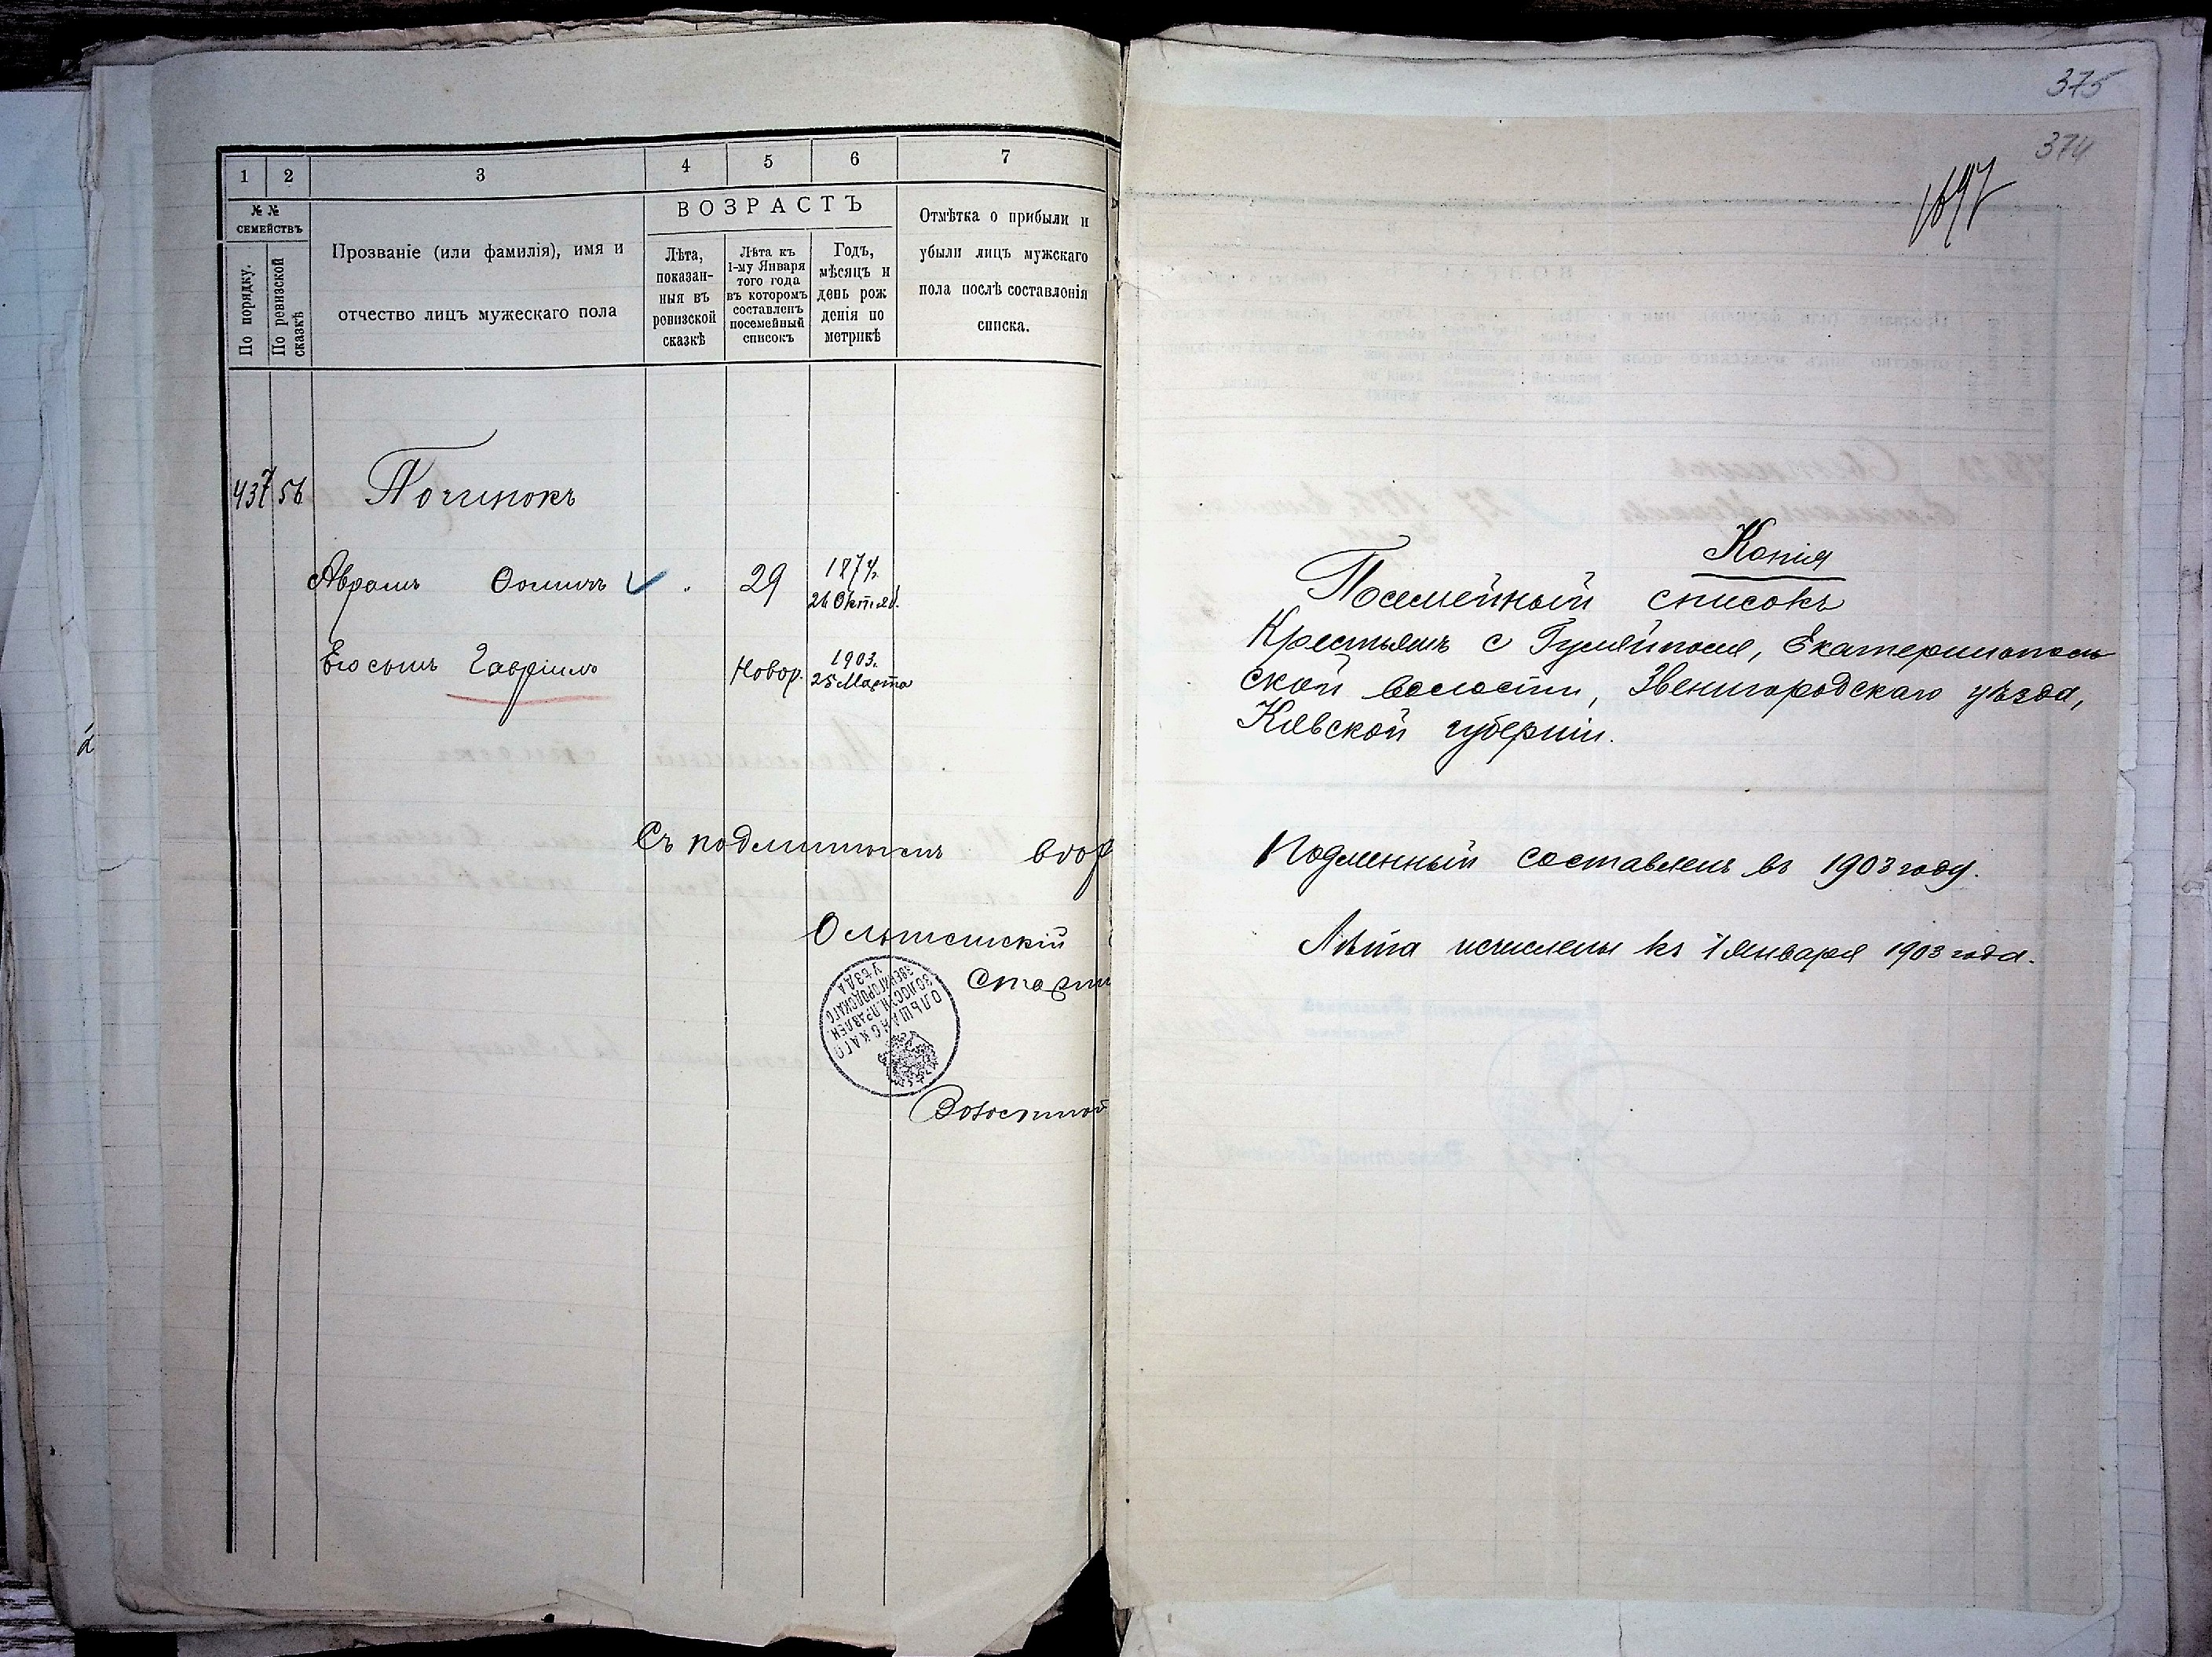 1 2 3 4 5 6 7
№ №
СЕМЕЙСТВЪ
По порядку.
По ревизской
сказкѣ
Прозваніе (или фамилія), имя и
отчество лицъ мужескаго пола
ВОЗРАСТЪ
Лѣта,
показан-
ныя въ
ревизской
сказкѣ
Лѣта къ
1-му Января
того года
въ которомъ
составленъ
посемейный
списокъ
Годъ,
мѣсяцъ и
день рож
денія по
метрикѣ
Отмѣтка о прибыли и
убыли лицъ мужскаго
пола послѣ составленія
списка.
437 56 Починокъ
Аврамъ 29 1874.
Октяб.
Его сынъ Гавріилъ Новор. 1903.
25 Марта
Съ подлиннымъ
Ольшанскій
Старши
ОЛЬШАНСКАГО
ВОЛОСТН. ПРАВЛЕН.
ЗВЕНИГОРОДСКАГО
УѢЗДА
Волостной
375
374
1697
Копія
Посемейный списокъ
Крестьянъ с Гуляйполя, Екатеринополь
ской волости, Звенигородскаго уѣзда,
Кіевской губерніи.
Подленный составленъ въ 1903 году.
Лѣта исчислены къ 1 января 1903 года.